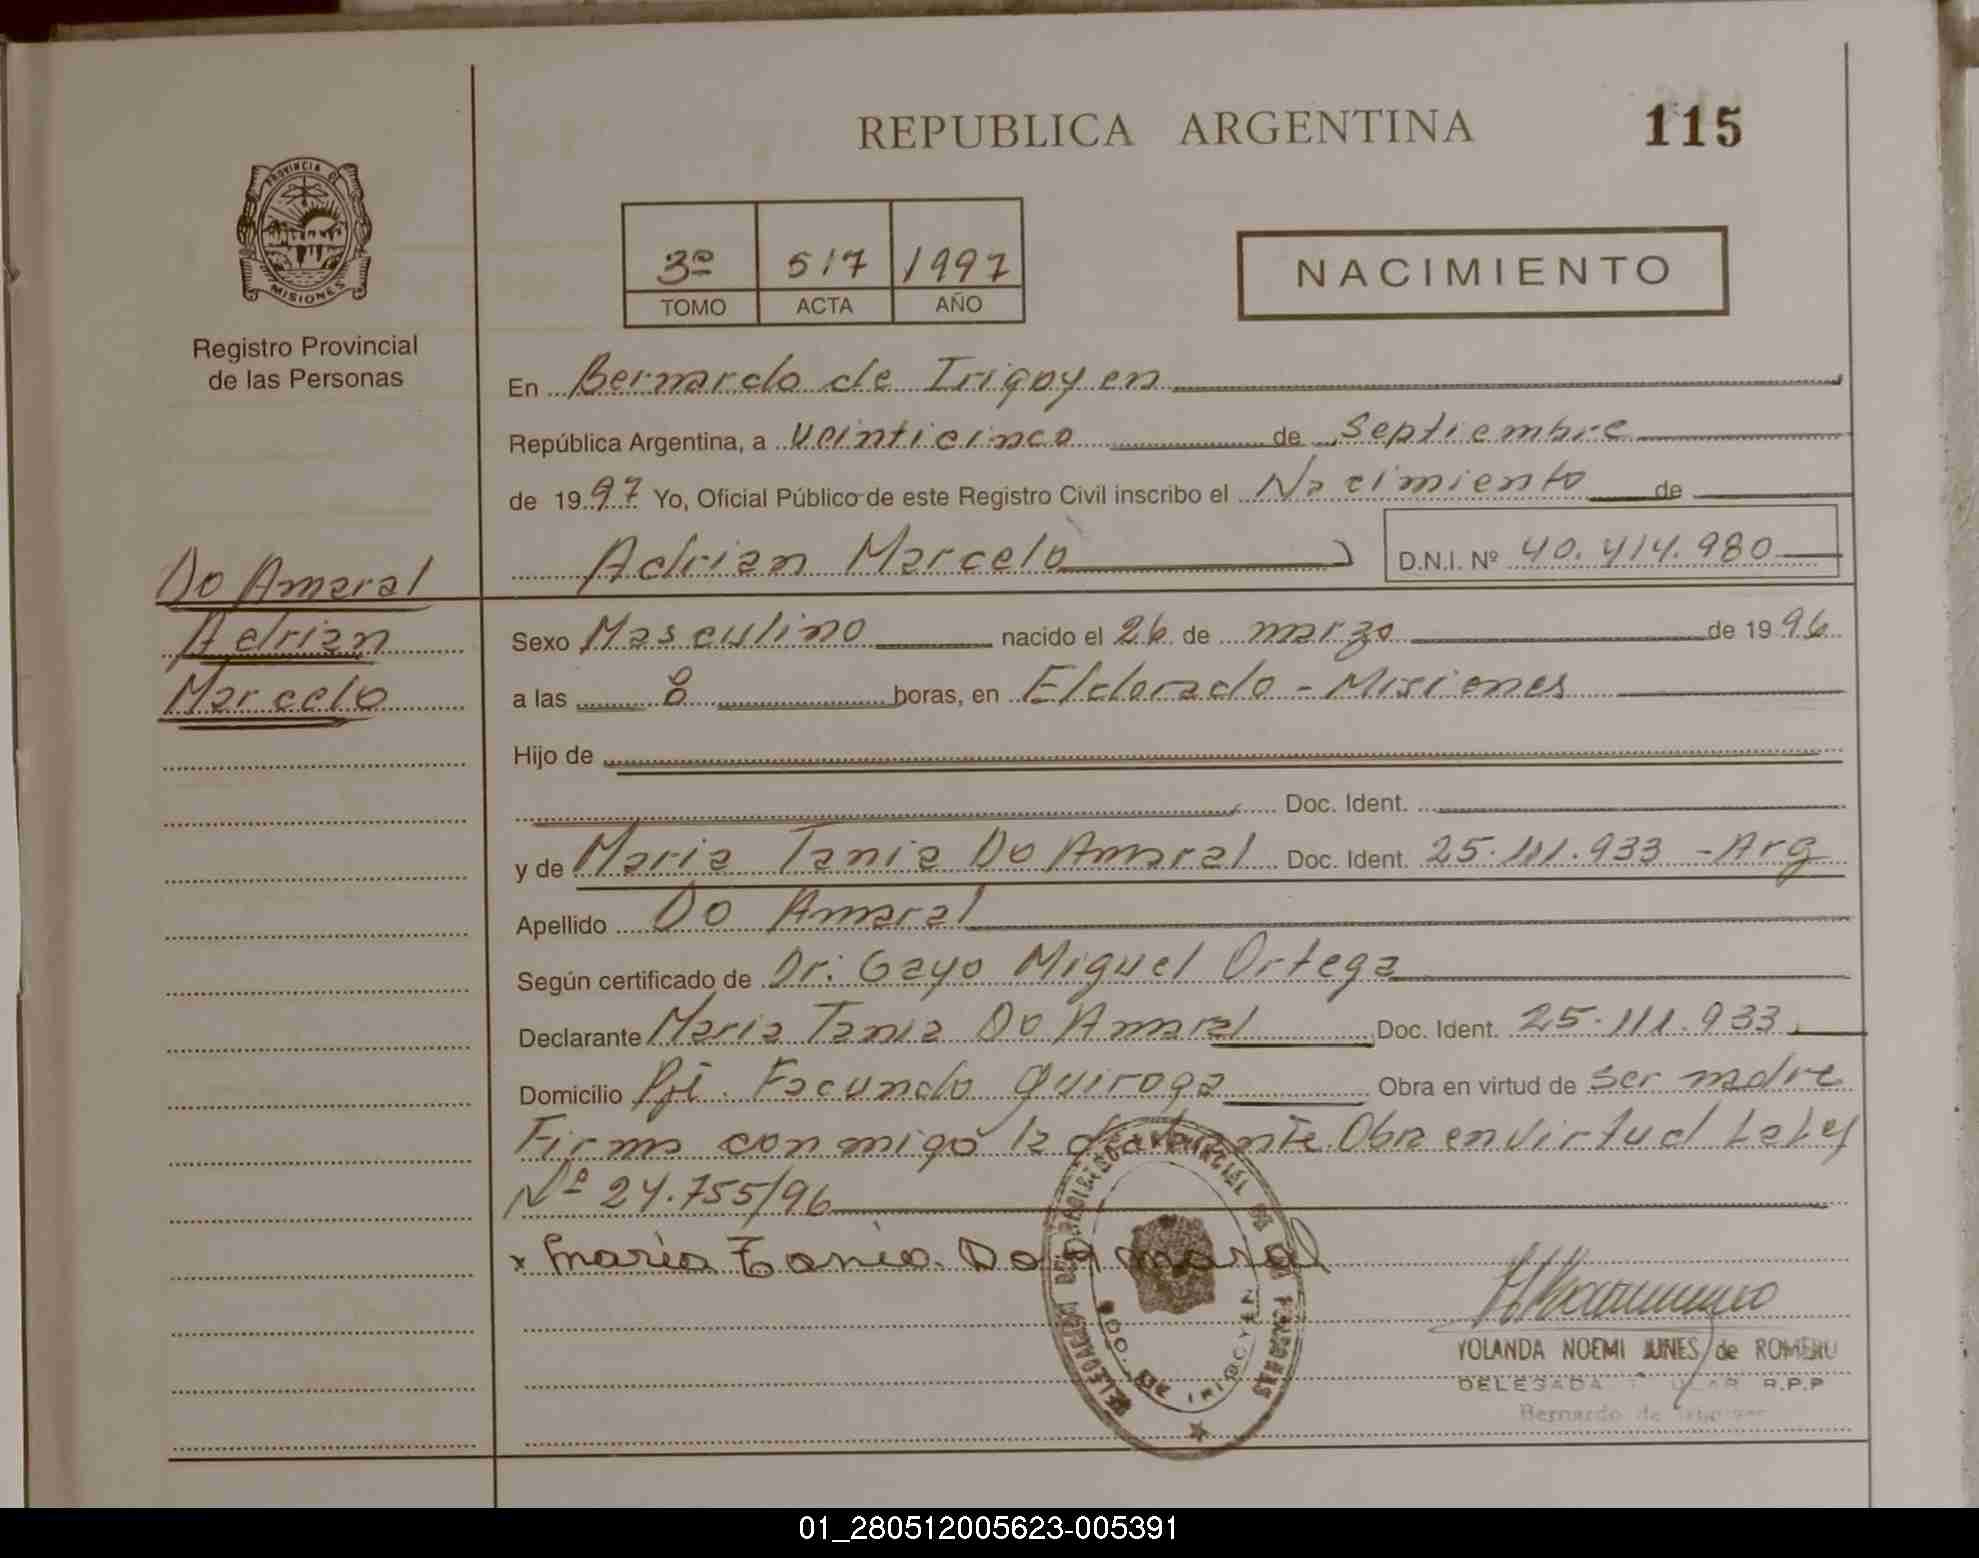 REPUBLICA ARGENTINA
115
PROVINCIA DE
MISIONES
Registro Provincial
de las Personas
3º 517 1997
TOMO ACTA AÑO
NACIMIENTO
En Bernardo de Irigoyen
República Argentina, a Veinticinco de Septiembre
de 1997 Yo, Oficial Público de este Registro Civil inscribo el Nacimiento de
Adrian Marcelo D.N.I. Nº 40.414.980
Do Amaral
Adrian
Marcelo
Sexo Masculino nacido el 26 de marzo de 1996
a las 8 horas, en Eldorado - Misiones
Hijo de
Doc. Ident.
y de Maria Tania Do Amaral Doc. Ident. 25.111.933 - Arg
Apellido Do Amaral
Según certificado de Dr: Gayo Miguel Ortega
Declarante Maria Tania Do Amaral Doc. Ident. 25.111.933
Domicilio Pje. Facundo Quiroga Obra en virtud de ser madre
Firma conmigo la declarante Obra en virtud La Ley
Nº 24.755/96
x Maria Tania Do Amaral
DELEGACION DEL REGISTRO PROVINCIAL DE LAS PERSONAS
BDO. DE IRIGOYEN
YOLANDA NOEMI JUNES de ROMERO
DELEGADA R.P.P
Bernardo de Irigoyen
01_280512005623-005391